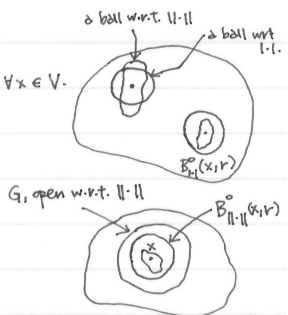 a ball w.r.t. ||·||
a ball wrt
|·|.
∀x ∈ V.
B°|·|(x,r)
G, open w.r.t. ||·||
B°||·||(x,r)
x